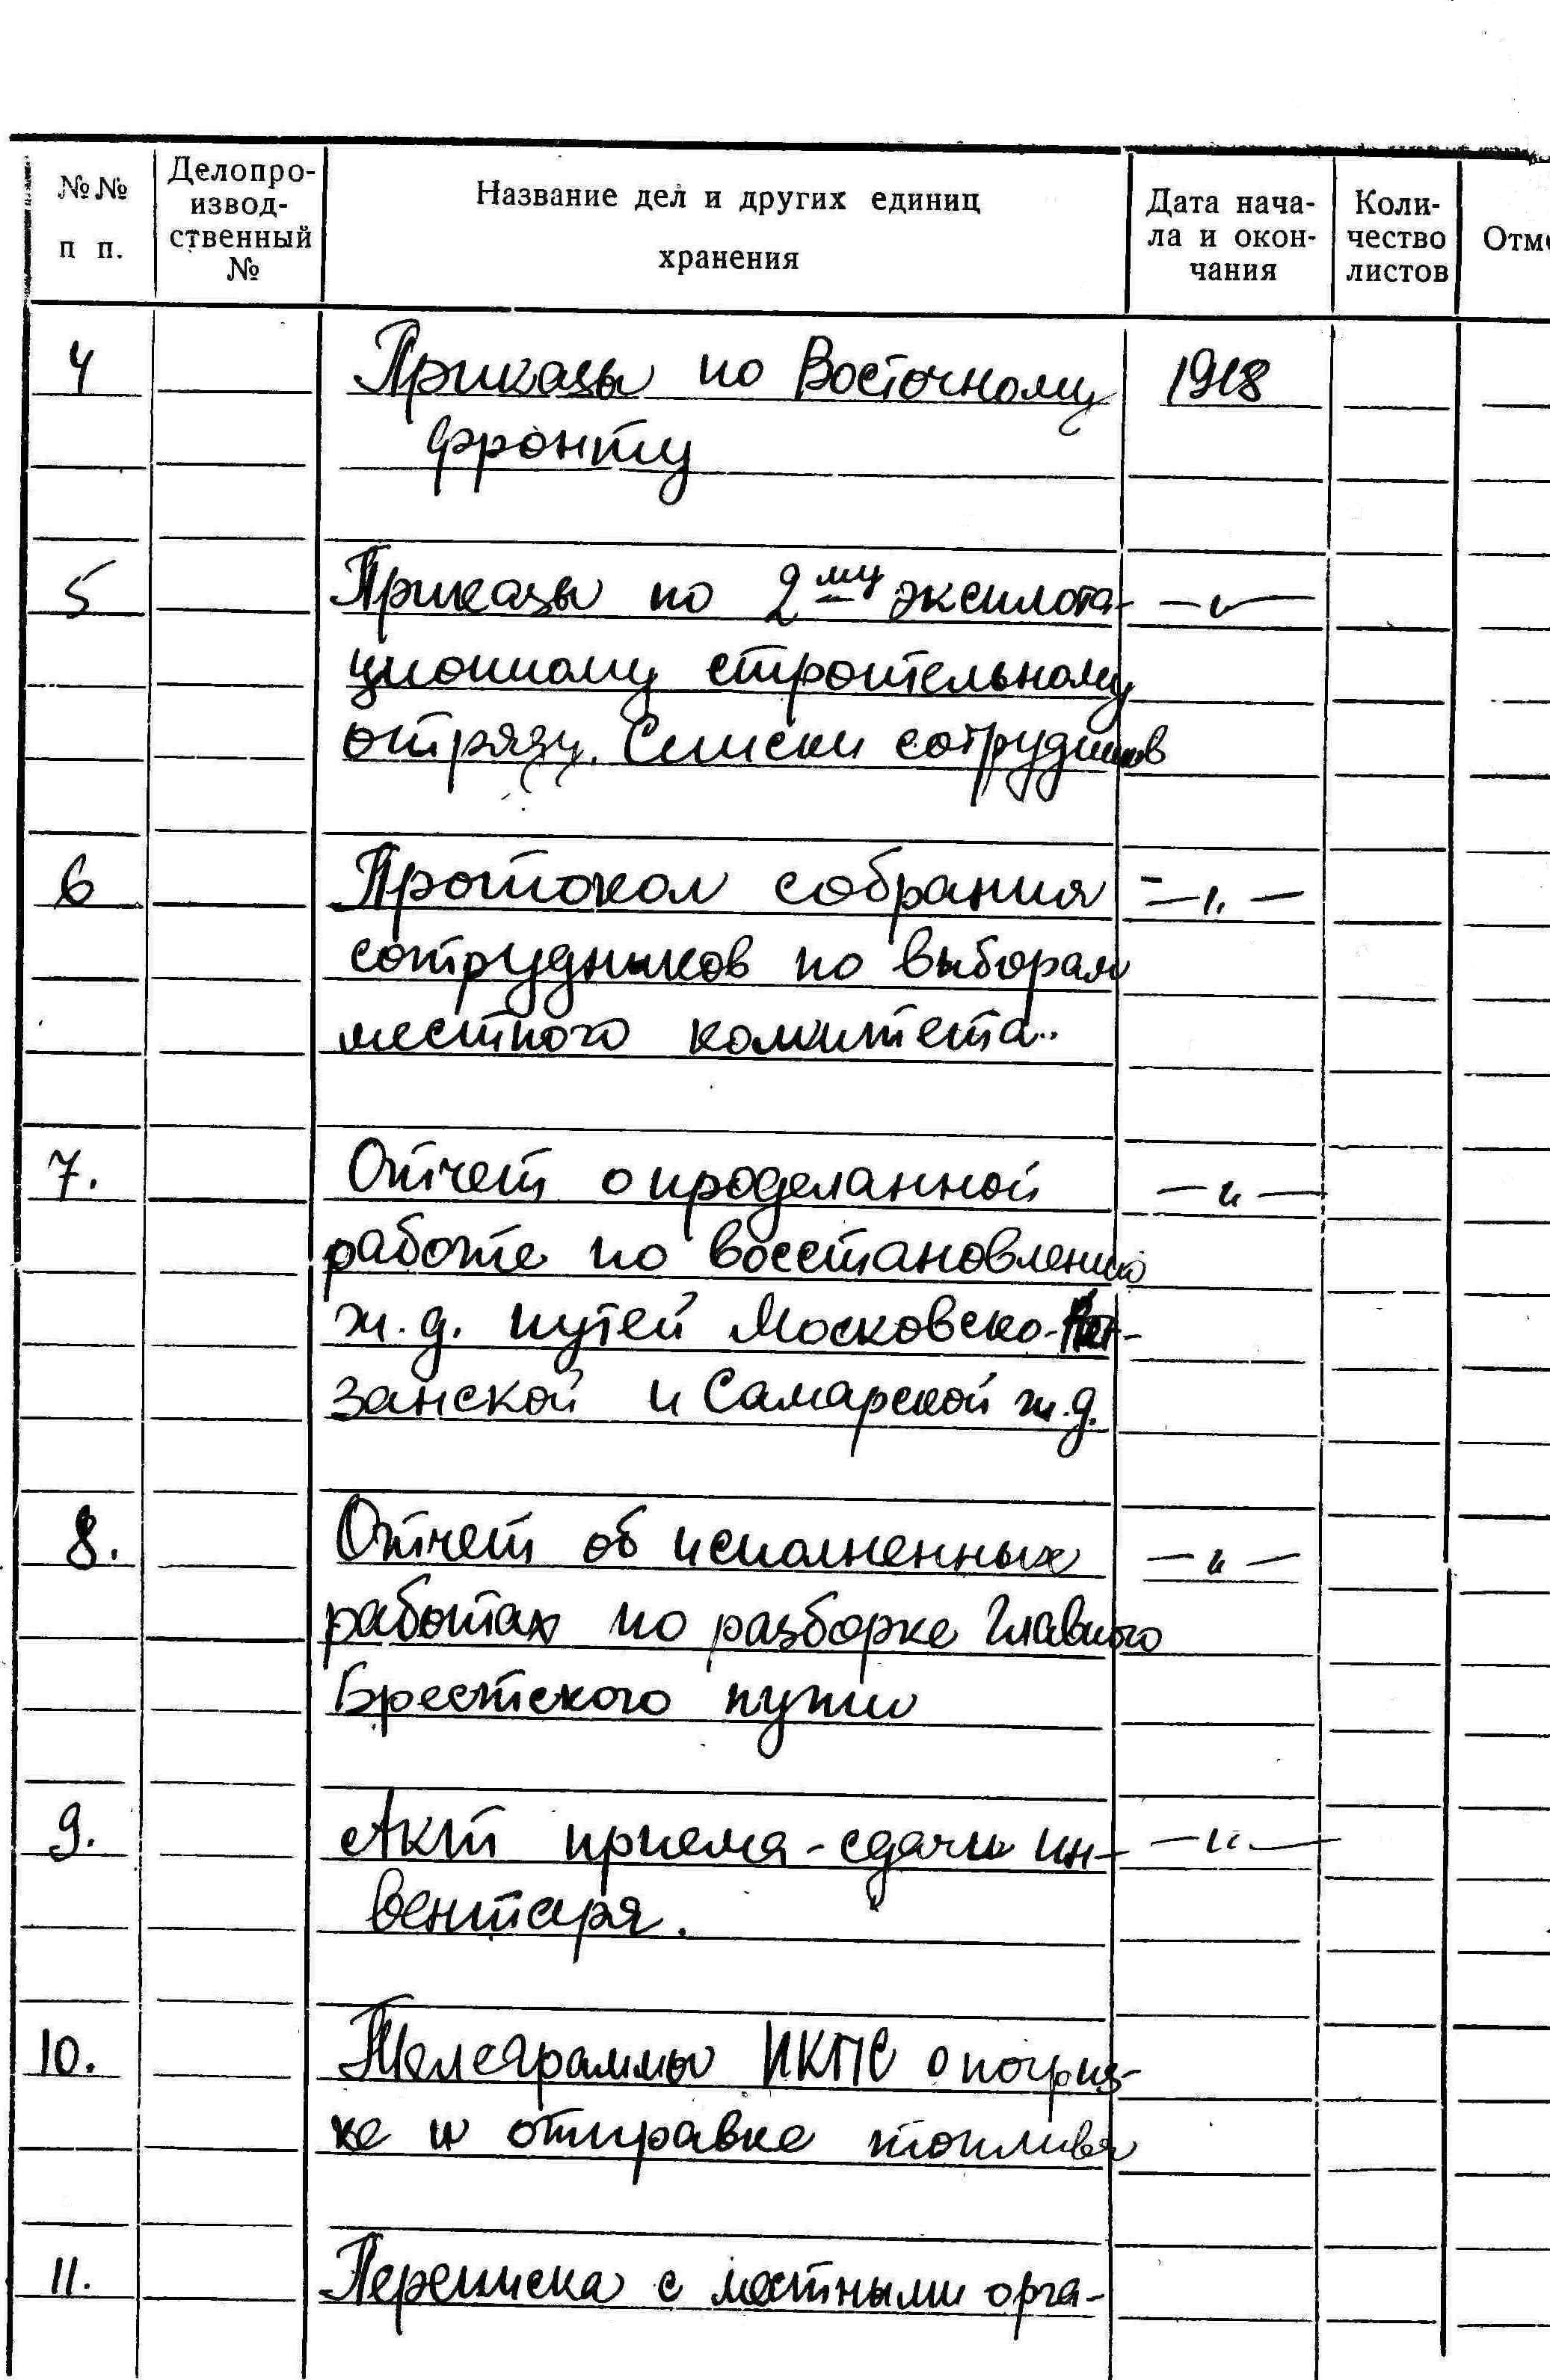 №№ п п.
Делопро-
извод-
ственный
№
Название дел и других единиц
хранения
Дата нача-
ла и окон-
чания
Коли-
чество
листов
Отм
4 Приказы по Восточному 1918
фронту
5 Приказы по 2му эксплота- — " —
ционному строительному
отряду. Списки сотрудников
6 Протокол собрания — " —
сотрудников по выборам
местного комитета.
7. Отчет о проделанной — " —
работе по восстановлению
ж.д. путей Московско-
занской и Самарской ж.д.
8. Отчет об исполненных — " —
работах по разборке Главного
Брестского пути
9. Акт приема-сдачи ин- — " —
вентаря.
10. Телеграммы НКПС о погруз-
ке и отправке топлива
11. Переписка с местными орга-